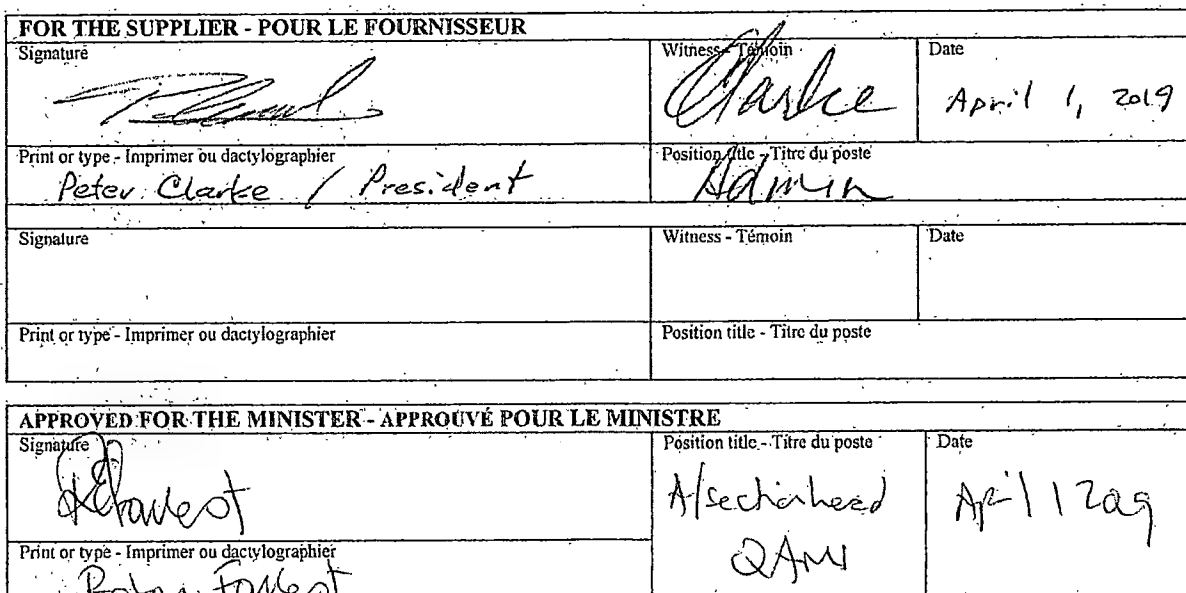 FOR THE SUPPLIER - POUR LE FOURNISSEUR
Signature
Witness - Témoin
Date
Clarke
April 1, 2019
Print or type - Imprimer ou dactylographier
Position title - Titre du poste
Peter Clarke / President
Admin
Signature
Witness - Témoin
Date
Print or type - Imprimer ou dactylographier
Position title - Titre du poste
APPROVED FOR THE MINISTER - APPROUVÉ POUR LE MINISTRE
Signature
Position title - Titre du poste
Date
A/section head
April 1 2019
Print or type - Imprimer ou dactylographier
Forrest